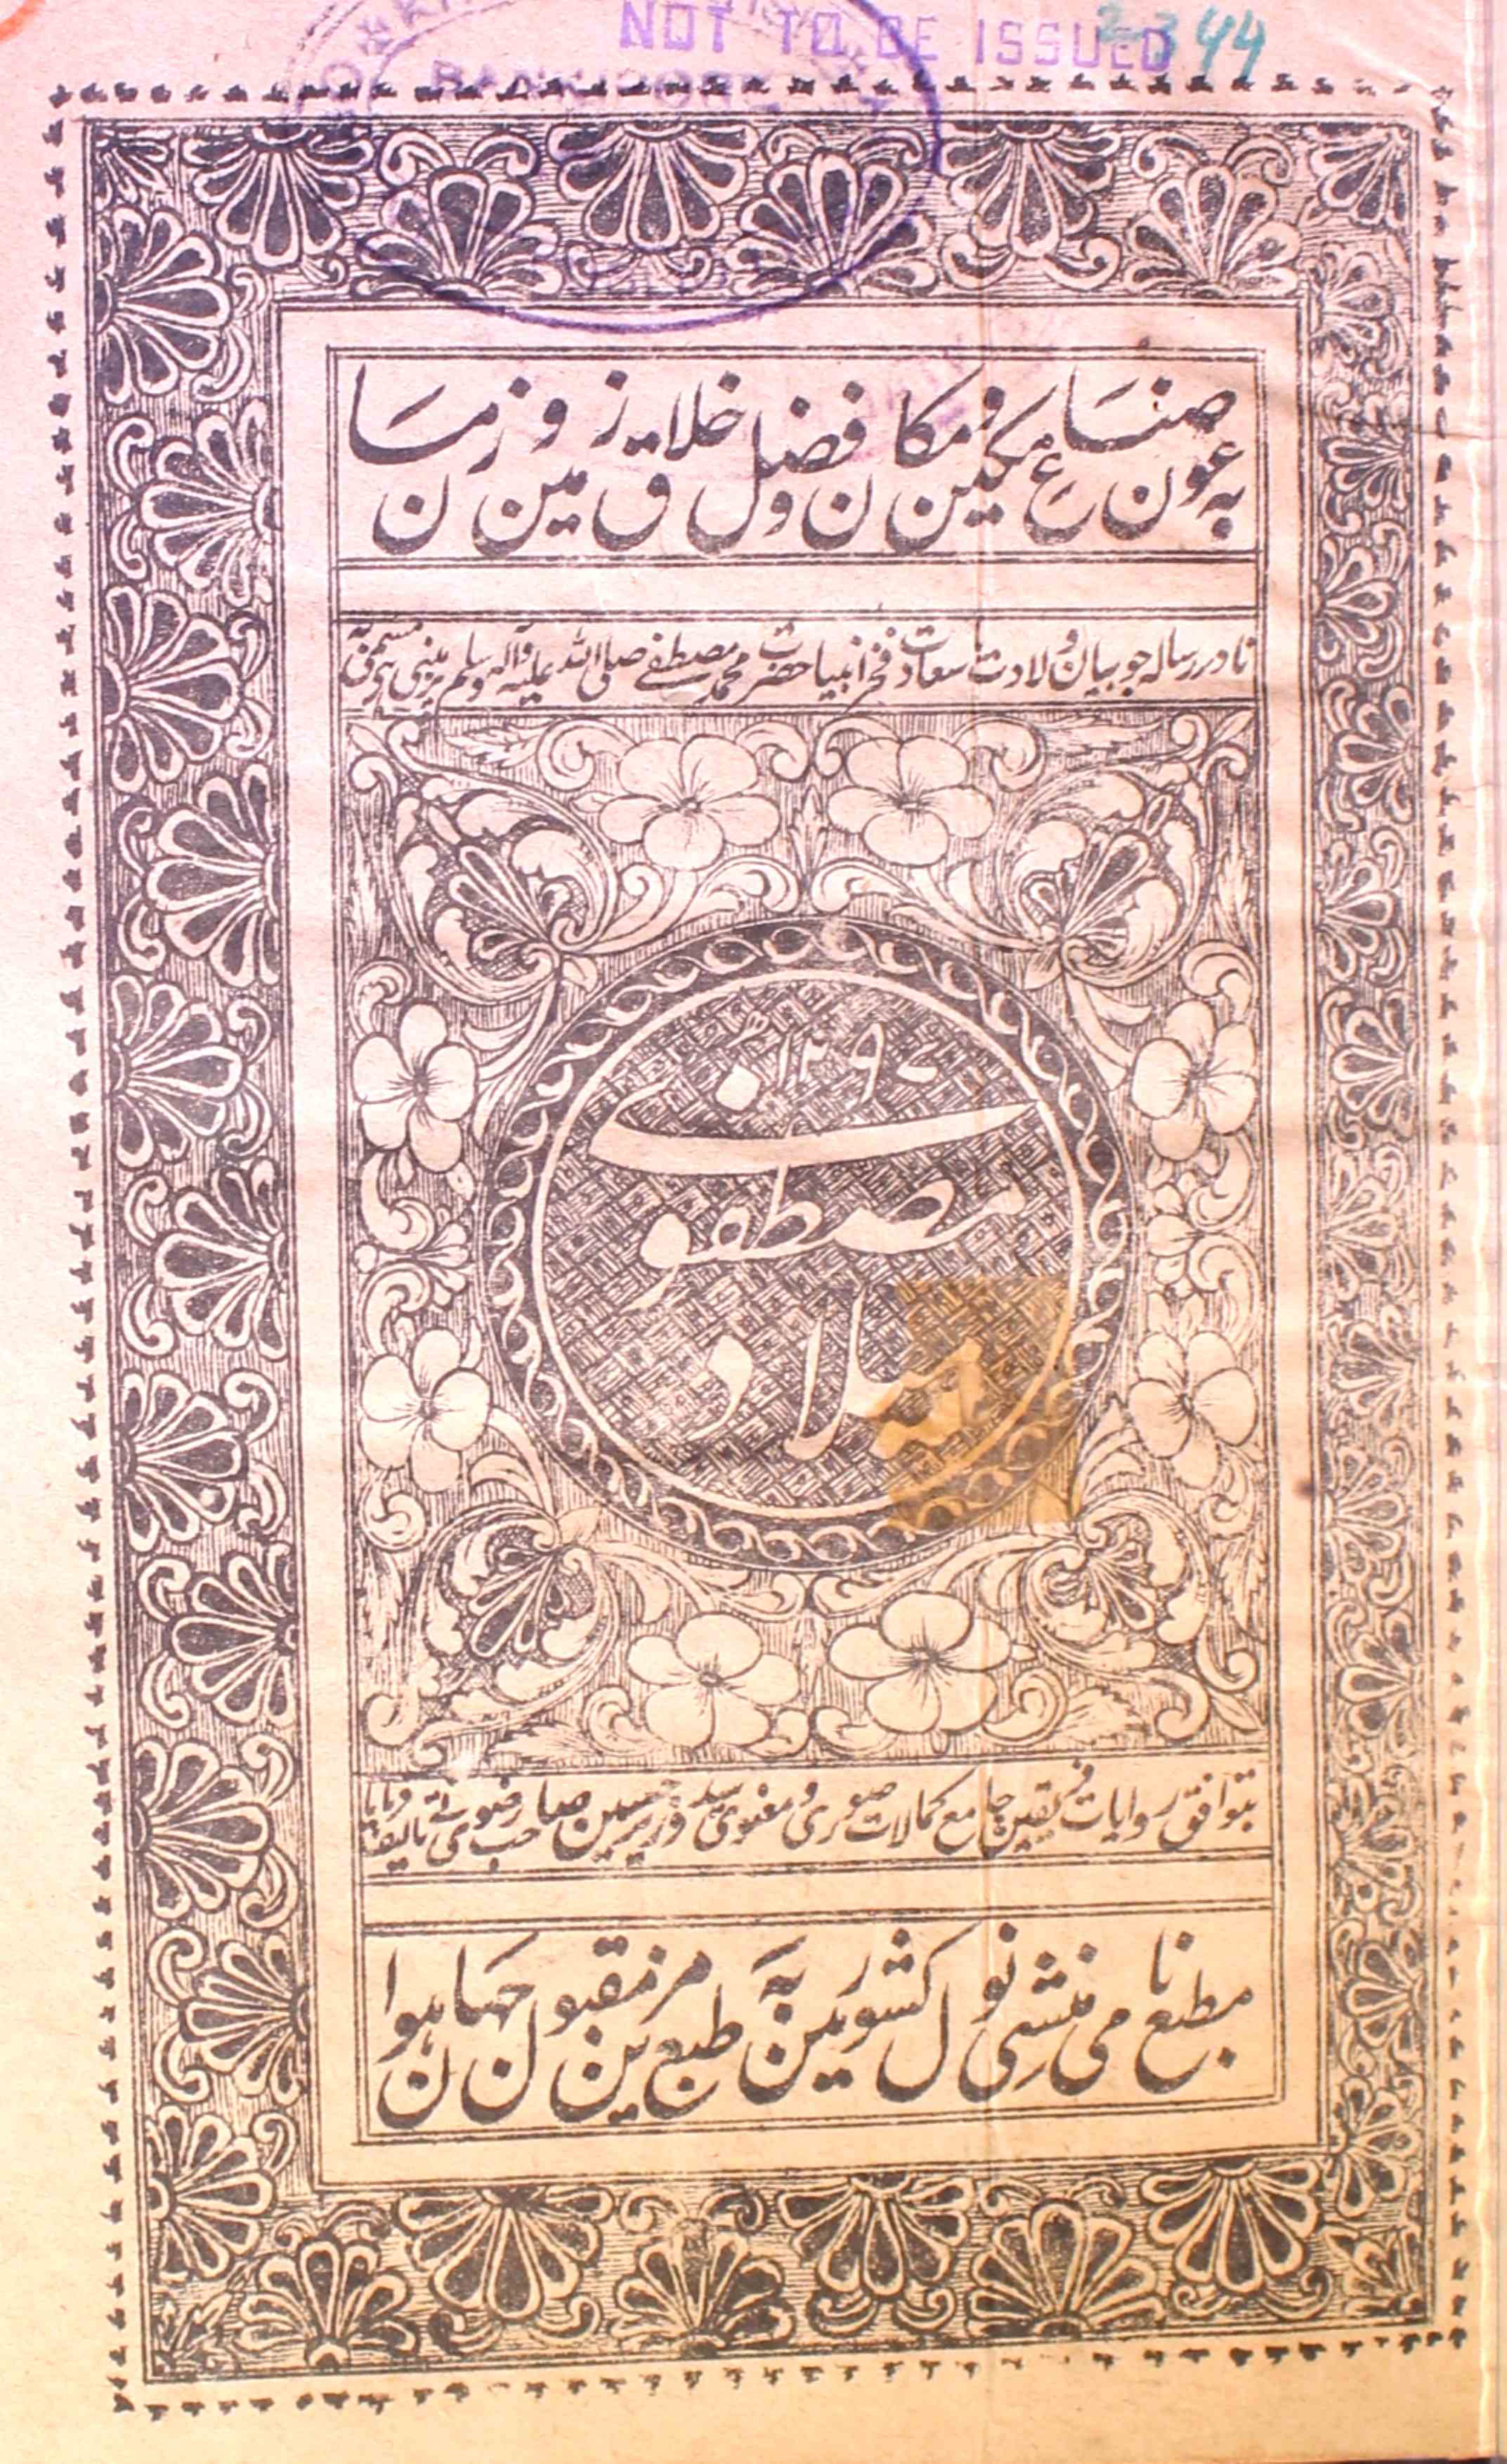 NOT TO BE ISSUED
2344
بہ عون صناع مکین و مکان و فضل خلاق زمین و زمان
نادر رسالہ جو بیان ولادت سعادت فخر انبیا حضرت محمد مصطفے صلی اللہ علیہ وآلہ وسلم پر مبنی ہی مسمی بہ
۱۲۹۷ھ
میلاد مصطفوے
بتوافق روایات فریقین جامع کمالات صوری و معنوی سید وزیر حسین صاحب رضوی نے تالیف فرمایا
مطبع نامی منشی نول کشور مین بہ طبع مزین مقبول جہان ہوا